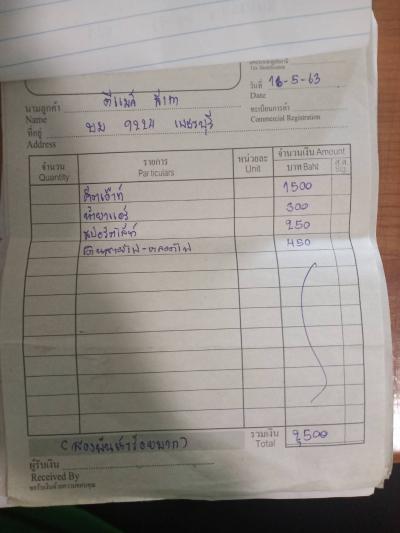 เลขประจำตัวผู้เสียภาษี
Tax Identification
วันที่ 16-5-63
Date
นามลูกค้า ดีแมค
Name
ทะเบียนการค้า
Commercial Registration
ที่อยู่ บม 9224 เพชรบุรี
Address
จำนวน รายการ หน่วยละ จำนวนเงิน Amount
Quantity Particulars Unit บาท Baht ส.ต. Stg.
1500
น้ำยาแอร์ 300
250
450
(สองพันห้าร้อยบาท) รวมเงิน 2,500
Total
ผู้รับเงิน
Received By
ขอรับเงินด้วยความขอบคุณ